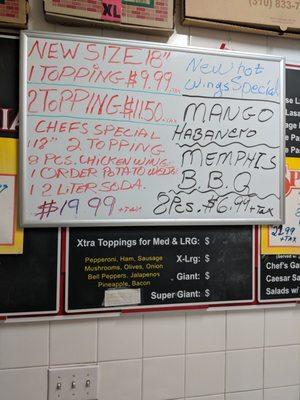 XL
310) 833
NEW SIZE 18"
1 TOPPING $9.99 +TAX
2 TOPPING $11.50 +TAX
CHEFS SPECIAL
1 12" 2 TOPPING
8 PCS. CHICKEN WING
1 ORDER POTATO WEDGES
1 2 LITER SODA.
$19.99 +TAX
New hot
wings Special
MANGO
HABANERO
MEMPHIS
B.B.Q
8Pcs. $6.99 +TAX
Xtra Toppings for Med & LRG: $
Pepperoni, Ham, Sausage
Mushrooms, Olives, Onion
Bell Peppers, Jalapeno,
Pineapple, Bacon
X-Lrg: $
Giant: $
Super Giant: $
+TAX
Chef's Ga
Caesar Sa
Salads w/